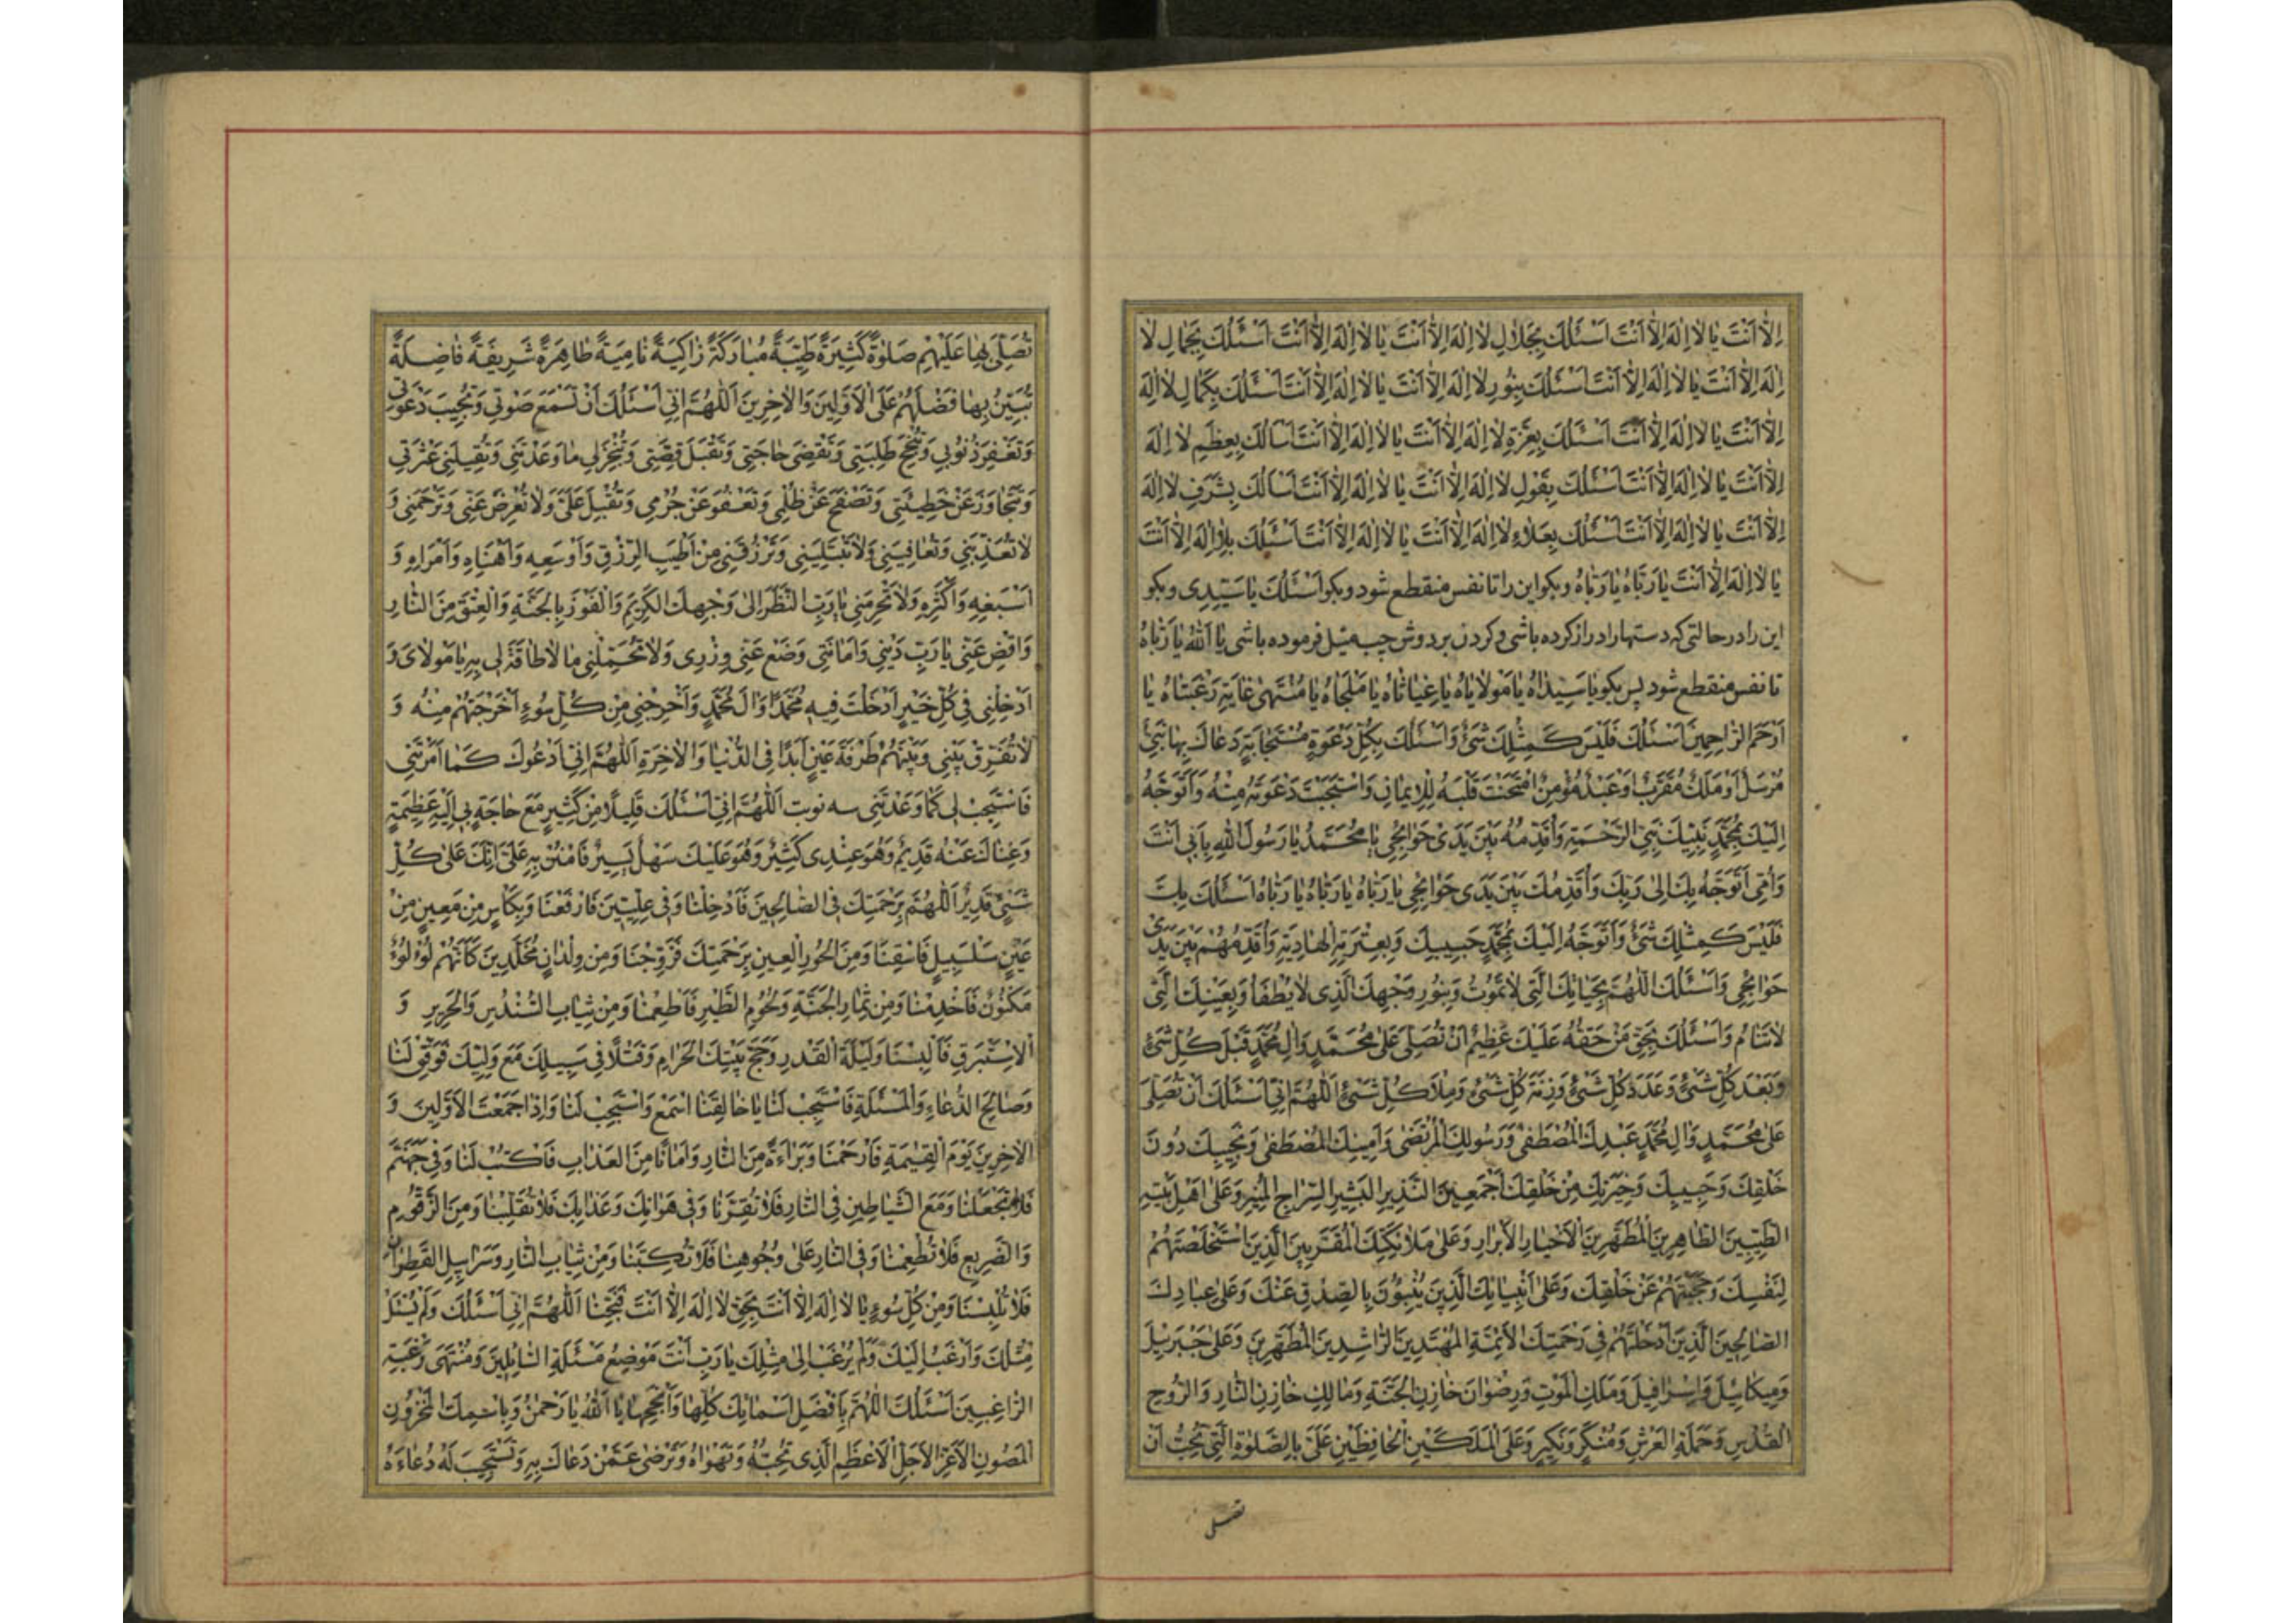 اِلّا اَنْتَ يا لا اِلٰهَ اِلّا اَنْتَ اَسْئَلُكَ بِجَلالِ لا اِلٰهَ اِلّا اَنْتَ يا لا اِلٰهَ اِلّا اَنْتَ اَسْئَلُكَ بِجَمالِ لا
اِلٰهَ اِلّا اَنْتَ يا لا اِلٰهَ اِلّا اَنْتَ اَسْئَلُكَ بِنُورِ لا اِلٰهَ اِلّا اَنْتَ يا لا اِلٰهَ اِلّا اَنْتَ اَسْئَلُكَ بِكَمالِ لا اِلٰهَ
اِلّا اَنْتَ يا لا اِلٰهَ اِلّا اَنْتَ اَسْئَلُكَ بِعِزَّةِ لا اِلٰهَ اِلّا اَنْتَ يا لا اِلٰهَ اِلّا اَنْتَ اَسْاَلُكَ بِعِظَمِ لا اِلٰهَ
اِلّا اَنْتَ يا لا اِلٰهَ اِلّا اَنْتَ اَسْئَلُكَ بِقَوْلِ لا اِلٰهَ اِلّا اَنْتَ يا لا اِلٰهَ اِلّا اَنْتَ اَسْاَلُكَ بِشَرَفِ لا اِلٰهَ
اِلّا اَنْتَ يا لا اِلٰهَ اِلّا اَنْتَ اَسْئَلُكَ بِعَلاءِ لا اِلٰهَ اِلّا اَنْتَ يا لا اِلٰهَ اِلّا اَنْتَ اَسْئَلُكَ بِلا اِلٰهَ اِلّا اَنْتَ
يا لا اِلٰهَ اِلّا اَنْتَ يا رَبّاهُ يا رَبّاهُ وبكو اين را تا نفس منقطع شود وبكو اَسْئَلُكَ يا سَيِّدِى وبكو
اين را در حالتى كه دستها را دراز كرده باشى وكردن بر دوش چپ ميل فرموده باشى يا اَللّٰهُ يا رَبّاهُ
تا نفس منقطع شود پس بكو يا سَيِّداهُ يا مَوْلاياهُ يا غِياثاهُ يا مَلْجَاهُ يا مُنْتَهىٰ غايَةِ رَغْبَتاهُ يا
اَرْحَمَ الرّاحِمِينَ اَسْئَلُكَ فَلَيْسَ كَمِثْلِكَ شَىْءٌ وَاَسْئَلُكَ بِكُلِّ دَعْوَةٍ مُسْتَجابَةٍ دَعاكَ بِها نَبِىٌّ
مُرْسَلٌ اَوْ مَلَكٌ مُقَرَّبٌ اَوْ عَبْدٌ مُؤْمِنٌ امْتَحَنْتَ قَلْبَهُ لِلْاِيمانِ وَاسْتَجَبْتَ دَعْوَتَهُ مِنْهُ وَاَتَوَجَّهُ
اِلَيْكَ بِمُحَمَّدٍ نَبِيِّكَ نَبِىِّ الرَّحْمَةِ وَاُقَدِّمُهُ بَيْنَ يَدَىْ حَوائِجِى يا مُحَمَّدُ يا رَسُولَ اللّٰهِ بِاَبِى اَنْتَ
وَاُمِّى اَتَوَجَّهُ بِكَ اِلىٰ رَبِّكَ وَاُقَدِّمُكَ بَيْنَ يَدَى حَوائِجِى يا رَبّاهُ يا رَبّاهُ يا رَبّاهُ اَسْئَلُكَ بِكَ
فَلَيْسَ كَمِثْلِكَ شَىْءٌ وَاَتَوَجَّهُ اِلَيْكَ بِمُحَمَّدٍ حَبِيبِكَ وَبِعِتْرَتِهِ الْهادِيَةِ وَاُقَدِّمُهُمْ بَيْنَ يَدَىْ
حَوائِجِى وَاَسْئَلُكَ اللّٰهُمَّ بِحَياتِكَ الَّتِى لا تَمُوتُ وَبِنُورِ وَجْهِكَ الَّذِى لا يُطْفَاُ وَبِعَيْنِكَ الَّتِى
لا تَنامُ وَاَسْئَلُكَ بِحَقِّ مَنْ حَقُّهُ عَلَيْكَ عَظِيمٌ اَنْ تُصَلِّىَ عَلىٰ مُحَمَّدٍ وَالِ مُحَمَّدٍ قَبْلَ كُلِّ شَىْءٍ
وَبَعْدَ كُلِّ شَىْءٍ وَعَدَدَ كُلِّ شَىْءٍ وَزِنَةَ كُلِّ شَىْءٍ وَمِلْاَ كُلِّ شَىْءٍ اَللّٰهُمَّ اِنِّى اَسْئَلُكَ اَنْ تُصَلِّىَ
عَلىٰ مُحَمَّدٍ وَالِ مُحَمَّدٍ عَبْدِكَ الْمُصْطَفىٰ وَرَسُولِكَ الْمُرْتَضىٰ وَاَمِينِكَ الْمُصْطَفىٰ وَنَجِيبِكَ دُونَ
خَلْقِكَ وَحَبِيبِكَ وَخِيَرَتِكَ مِنْ خَلْقِكَ اَجْمَعِينَ النَّذِيرِ الْبَشِيرِ السِّراجِ الْمُنِيرِ وَعَلىٰ اَهْلِ بَيْتِهِ
الطَّيِّبِينَ الطّاهِرِينَ الْمُطَهَّرِينَ الْاَخْيارِ الْاَبْرارِ وَعَلىٰ مَلائِكَتِكَ الْمُقَرَّبِينَ الَّذِينَ اسْتَخْلَصْتَهُمْ
لِنَفْسِكَ وَحَجَبْتَهُمْ عَنْ خَلْقِكَ وَعَلىٰ اَنْبِيائِكَ الَّذِينَ يُنْبِئُونَ بِالصِّدْقِ عَنْكَ وَعَلىٰ عِبادِكَ
الصّالِحِينَ الَّذِينَ اَدْخَلْتَهُمْ فِى رَحْمَتِكَ الْاَئِمَّةِ الْمُهْتَدِينَ الرّاشِدِينَ الْمُطَهَّرِينَ وَعَلىٰ جَبْرَئِيلَ
وَمِيكائِيلَ وَاِسْرافِيلَ وَمَلَكِ الْمَوْتِ وَرِضْوانَ خازِنِ الْجَنَّةِ وَمالِكٍ خازِنِ النّارِ وَالرُّوحِ
الْقُدُسِ وَحَمَلَةِ الْعَرْشِ وَمُنْكَرٍ وَنَكِيرٍ وَعَلَى الْمَلَكَيْنِ الْحافِظَيْنِ عَلَىَّ بِالصَّلٰوةِ الَّتِى تُحِبُّ اَنْ
تصلى
تُصَلِّىَ بِها عَلَيْهِمْ صَلٰوةً كَثِيرَةً طَيِّبَةً مُبارَكَةً زاكِيَةً نامِيَةً طاهِرَةً شَرِيفَةً فاضِلَةً
تُبَيِّنُ بِها فَضْلَهُمْ عَلَى الْاَوَّلِينَ وَالْاٰخِرِينَ اَللّٰهُمَّ اِنِّى اَسْئَلُكَ اَنْ تَسْمَعَ صَوْتِى وَتُجِيبَ دَعْوَتِى
وَتَغْفِرَ ذُنُوبِى وَتُنْجِحَ طَلِبَتِى وَتَقْضِىَ حاجَتِى وَتَقْبَلَ قِصَّتِى وَتُنْجِزَ لِى ما وَعَدْتَنِى وَتُقِيلَنِى عَثْرَتِى
وَتَتَجاوَزَ عَنْ خَطِيئَتِى وَتَصْفَحَ عَنْ ظُلْمِى وَتَعْفُوَ عَنْ جُرْمِى وَتُقْبِلَ عَلَىَّ وَلا تُعْرِضَ عَنِّى وَتَرْحَمَنِى وَ
لا تُعَذِّبَنِى وَتُعافِيَنِى وَلا تَبْتَلِيَنِى وَتَرْزُقَنِى مِنْ اَطْيَبِ الرِّزْقِ وَاَوْسَعِهِ وَاَهْنَاهِ وَاَمْرَاهِ وَ
اَسْبَغِهِ وَاَكْثَرِهِ وَلا تَحْرِمَنِى يا رَبِّ النَّظَرَ اِلىٰ وَجْهِكَ الْكَرِيمِ وَالْفَوْزَ بِالْجَنَّةِ وَالْعِتْقَ مِنَ النّارِ
وَاقْضِ عَنِّى يا رَبِّ دَيْنِى وَاَمانَتِى وَضَعْ عَنِّى وِزْرِى وَلا تُحَمِّلْنِى ما لا طاقَةَ لِى بِهِ يا مَوْلاىَ وَ
اَدْخِلْنِى فِى كُلِّ خَيْرٍ اَدْخَلْتَ فِيهِ مُحَمَّدًا وَالَ مُحَمَّدٍ وَاَخْرِجْنِى مِنْ كُلِّ سُوءٍ اَخْرَجْتَهُمْ مِنْهُ وَ
لا تُفَرِّقْ بَيْنِى وَبَيْنَهُمْ طَرْفَةَ عَيْنٍ اَبَدًا فِى الدُّنْيا وَالْاٰخِرَةِ اَللّٰهُمَّ اِنِّى اَدْعُوكَ كَما اَمَرْتَنِى
فَاسْتَجِبْ لِى كَما وَعَدْتَنِى سه نوبت اَللّٰهُمَّ اِنِّى اَسْئَلُكَ قَلِيلًا مِنْ كَثِيرٍ مَعَ حاجَةٍ بِى اِلَيْهِ عَظِيمَةٍ
وَغِناكَ عَنْهُ قَدِيمٌ وَهُوَ عِنْدِى كَثِيرٌ وَهُوَ عَلَيْكَ سَهْلٌ يَسِيرٌ فَامْنُنْ بِهِ عَلَىَّ اِنَّكَ عَلىٰ كُلِّ
شَىْءٍ قَدِيرٌ اَللّٰهُمَّ بِرَحْمَتِكَ فِى الصّالِحِينَ فَاَدْخِلْنا وَفِى عِلِّيِّينَ فَارْفَعْنا وَبِكَاْسٍ مِنْ مَعِينٍ مِنْ
عَيْنٍ سَلْسَبِيلٍ فَاسْقِنا وَمِنَ الْحُورِ الْعِينِ بِرَحْمَتِكَ فَزَوِّجْنا وَمِنْ وِلْدانٍ مُخَلَّدِينَ كَاَنَّهُمْ لُؤْلُؤٌ
مَكْنُونٌ فَاَخْدِمْنا وَمِنْ ثِمارِ الْجَنَّةِ وَلُحُومِ الطَّيْرِ فَاَطْعِمْنا وَمِنْ ثِيابِ السُّنْدُسِ وَالْحَرِيرِ وَ
الْاِسْتَبْرَقِ فَاَلْبِسْنا وَلَيْلَةَ الْقَدْرِ وَحَجَّ بَيْتِكَ الْحَرامِ وَقَتْلًا فِى سَبِيلِكَ مَعَ وَلِيِّكَ فَوَفِّقْ لَنا
وَصالِحَ الدُّعاءِ وَالْمَسْئَلَةِ فَاسْتَجِبْ لَنا يا خالِقَنَا اسْمَعْ وَاسْتَجِبْ لَنا وَاِذا جَمَعْتَ الْاَوَّلِينَ وَ
الْاٰخِرِينَ يَوْمَ الْقِيٰمَةِ فَارْحَمْنا وَبَراءَةً مِنَ النّارِ وَاَمانًا مِنَ الْعَذابِ فَاكْتُبْ لَنا وَفِى جَهَنَّمَ
فَلا تَجْعَلْنا وَمَعَ الشَّياطِينِ فِى النّارِ فَلا تَقْرِنّا وَفِى هَوانِكَ وَعَذابِكَ فَلا تُقَلِّبْنا وَمِنَ الزَّقُّومِ
وَالضَّرِيعِ فَلا تُطْعِمْنا وَفِى النّارِ عَلىٰ وُجُوهِنا فَلا تَكُبَّنا وَمِنْ ثِيابِ النّارِ وَسَرابِيلِ الْقَطِرانِ
فَلا تُلْبِسْنا وَمِنْ كُلِّ سُوءٍ يا لا اِلٰهَ اِلّا اَنْتَ بِحَقِّ لا اِلٰهَ اِلّا اَنْتَ فَنَجِّنا اَللّٰهُمَّ اِنِّى اَسْئَلُكَ وَلَمْ يُسْئَلْ
مِثْلُكَ وَاَرْغَبُ اِلَيْكَ وَلَمْ يُرْغَبْ اِلىٰ مِثْلِكَ يا رَبِّ اَنْتَ مَوْضِعُ مَسْئَلَةِ السّائِلِينَ وَمُنْتَهىٰ رَغْبَةِ
الرّاغِبِينَ اَسْئَلُكَ اللّٰهُمَّ بِاَفْضَلِ اَسْمائِكَ كُلِّها وَاَنْجَحِها يا اَللّٰهُ يا رَحْمٰنُ وَبِاسْمِكَ الْمَخْزُونِ
الْمَصُونِ الْاَعَزِّ الْاَجَلِّ الْاَعْظَمِ الَّذِى تُحِبُّهُ وَتَهْواهُ وَتَرْضىٰ عَمَّنْ دَعاكَ بِهِ وَتَسْتَجِيبُ لَهُ دُعاءَهُ